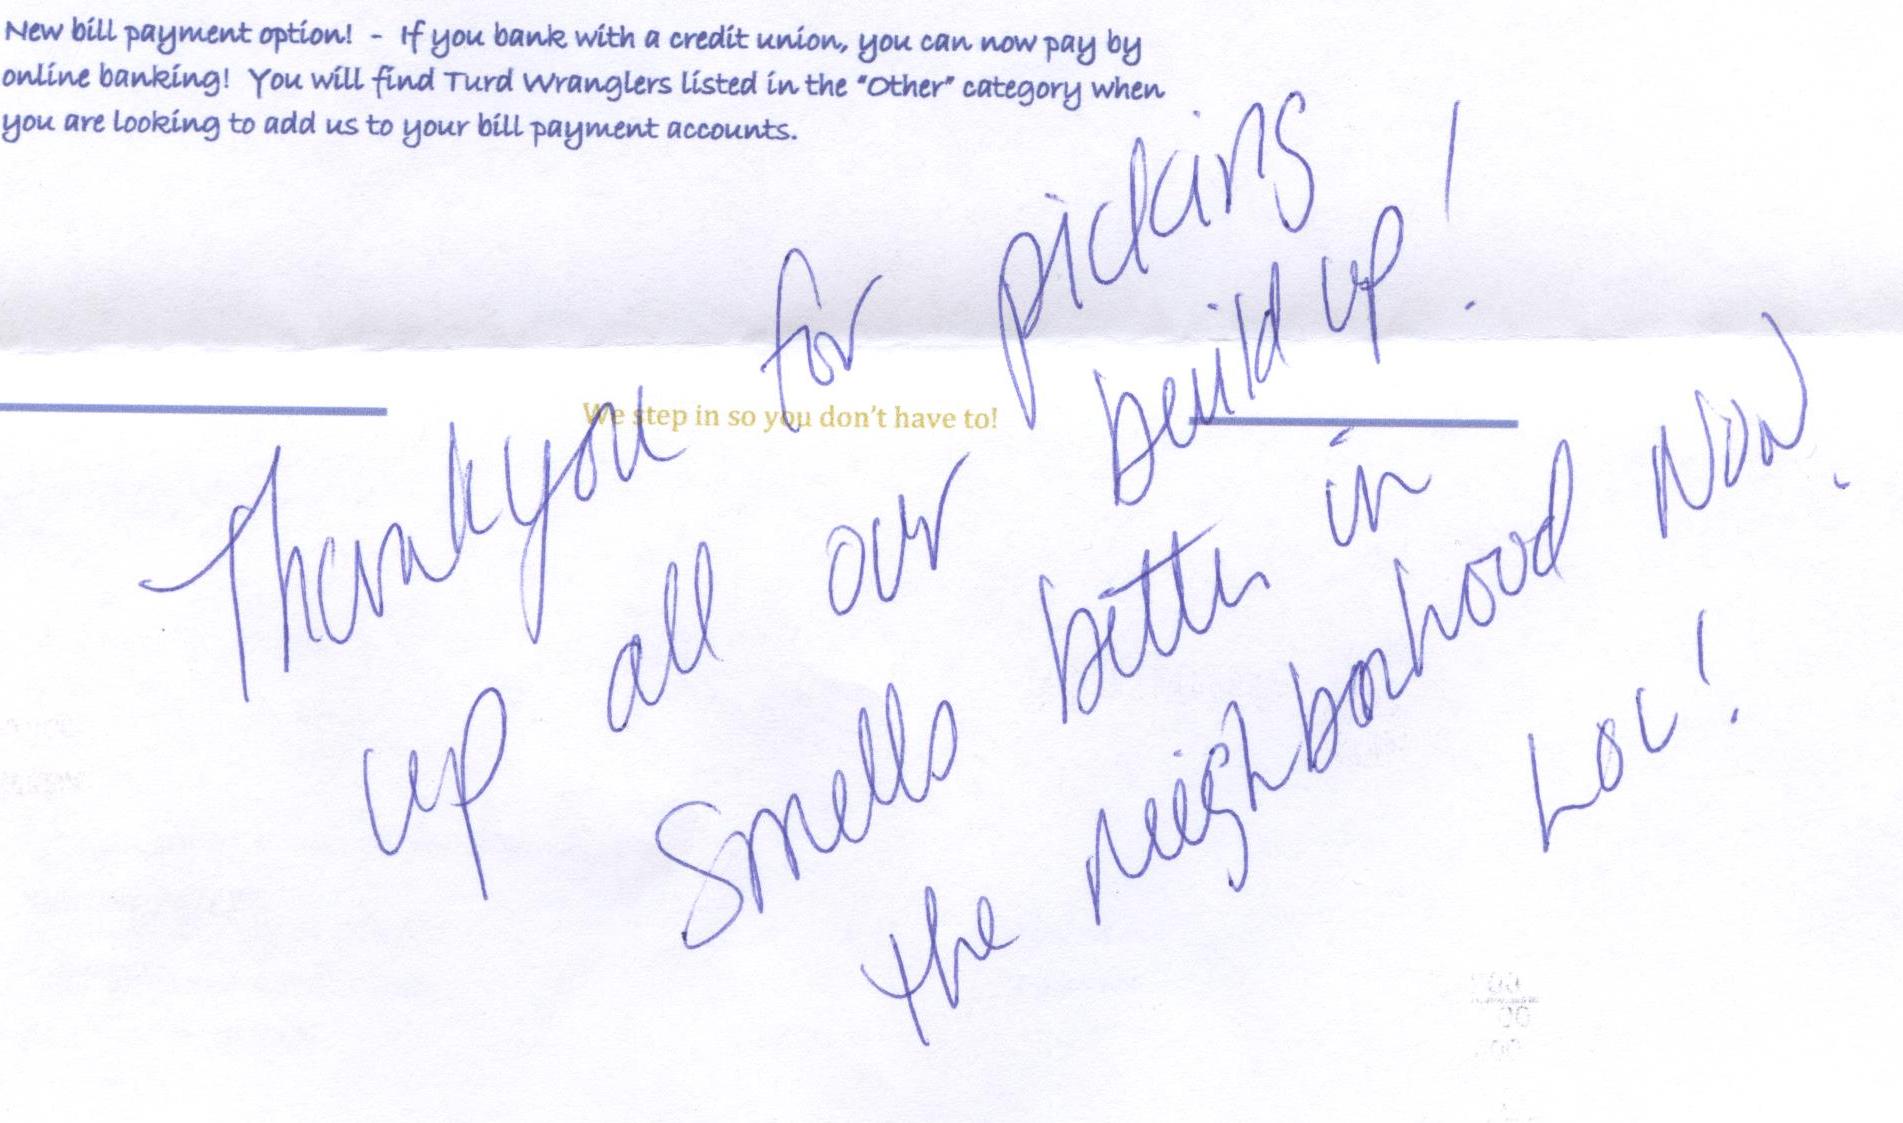 New bill payment option! - If you bank with a credit union, you can now pay by
online banking! You will find Turd Wranglers listed in the "Other" category when
you are looking to add us to your bill payment accounts.
We step in so you don't have to!
Thank you for picking
up all our build up!
Smells better in
the neighborhood Now.
LOL!